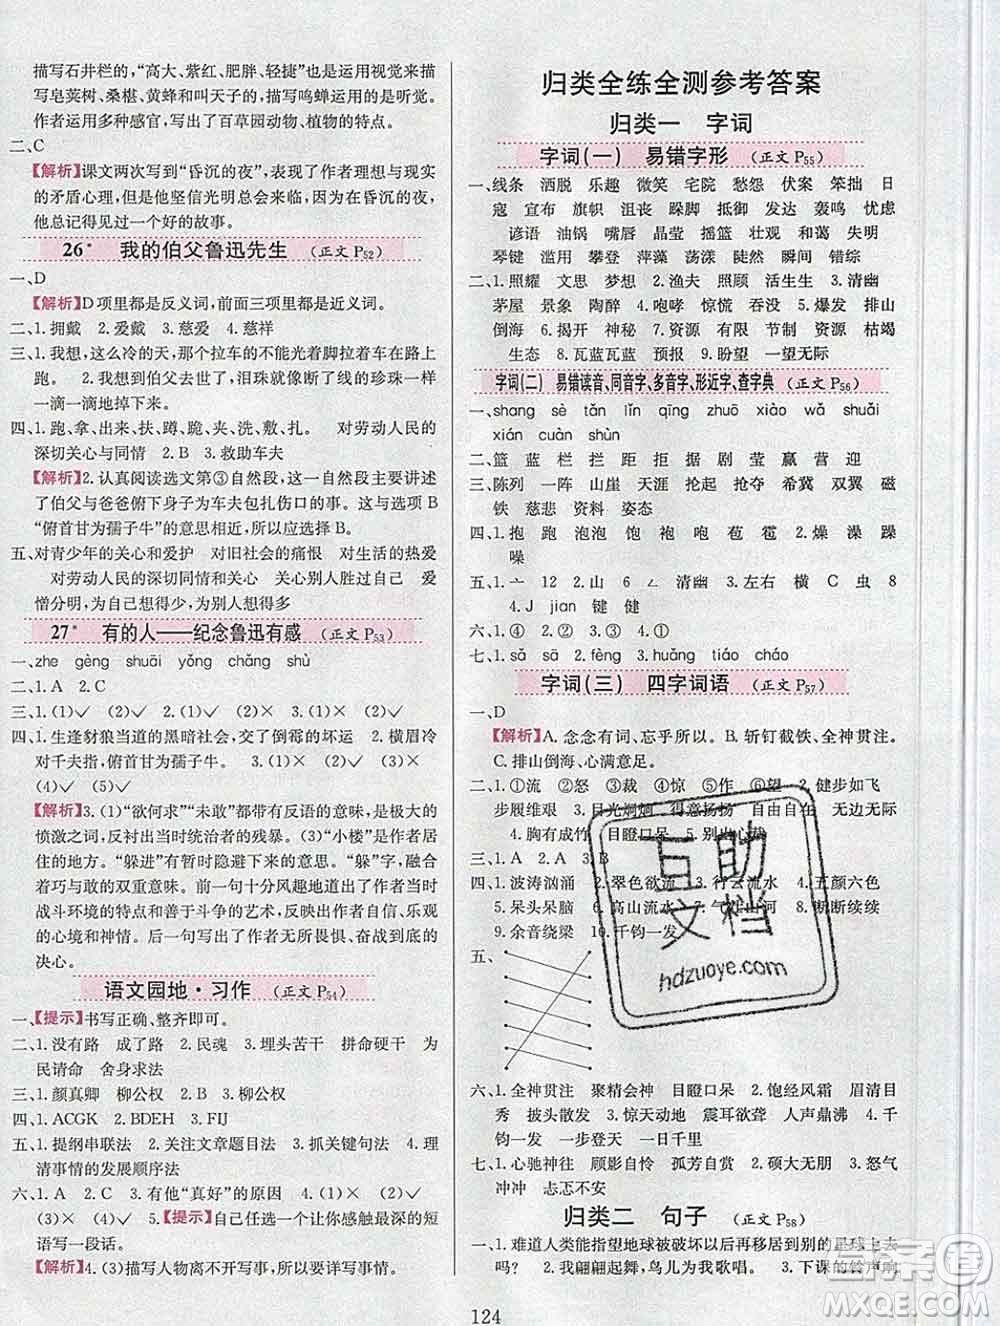 描写石井栏的，“高大、紫红、肥胖、轻捷”也是运用视觉来描
写皂荚树、桑椹、黄蜂和叫天子的，描写鸣蝉运用的是听觉。
作者运用多种感官，写出了百草园动物、植物的特点。
二、C
【解析】课文两次写到“昏沉的夜”，表达了作者理想与现实
的矛盾心理，但是他坚信光明总会来临，所以在昏沉的夜，
他总记得见过一个好的故事。
26* 我的伯父鲁迅先生 (正文P52)
一、D
【解析】D项里都是反义词，前面三项里都是近义词。
二、1. 拥戴 2. 爱戴 3. 慈爱 4. 慈祥
三、1. 我想，这么冷的天，那个拉车的不能光着脚拉着车在路上
跑。 2. 我想到伯父去世了，泪珠就像断了线的珍珠一样
一滴一滴地掉下来。
四、1. 跑、拿、出来、扶、蹲、跪、夹、洗、敷、扎。 对劳动人民的
深切关心与同情 2. B 3. 救助车夫
【解析】2. 认真阅读选文第③自然段，这个自然段主要讲述
了伯父与爸爸俯下身子为车夫包扎伤口的事，这与选项B
“俯首甘为孺子牛”的意思相近，所以应选择B。
五、对青少年的关心和爱护 对旧社会的痛恨 对生活的热爱
对劳动人民的深切同情和关心 关心别人胜过自己 爱
憎分明，为自己想得少，为别人想得多
27* 有的人——纪念鲁迅有感 (正文P53)
一、zhe gèng shuāi yǒng chǎng shù
二、1. A 2. C
三、1. (1)✓ (2)✓ 2. (1)× (2)✓ 3. (1)× (2)✓
四、1. 生逢豺狼当道的黑暗社会，交了倒霉的坏运 2. 横眉冷
对千夫指，俯首甘为孺子牛。 3. (1)✓ (2)× (3)×
(4)✓
【解析】3. (1)“欲何求”“未敢”都带有反语的意味，是极大的
愤激之词，反衬出当时统治者的残暴。(3)“小楼”是作者居
住的地方。“躲进”有暂时隐避下来的意思。“躲”字，融合
着巧与敢的双重意味。前一句十分风趣地道出了作者根据
战斗环境的特点和善于斗争的艺术，反映出作者自信、乐观
的心境和神情。后一句写出了作者无所畏惧、奋战到底的
决心。
语文园地·习作 (正文P54)
一、【提示】书写正确、整齐即可。
二、1. 没有路 成了路 2. 民魂 3. 埋头苦干 拼命硬干 为
民请命 舍身求法
三、1. 颜真卿 柳公权 2. B 3. 柳公权
四、1. ACGK 2. BDEH 3. FIJ
五、1. 提纲串联法 2. 关注文章题目法 3. 抓关键句法 4. 理
清事情的发展顺序法
六、1. A 2. C 3. 有他“真好”的原因 4. (1)✓ (2)✓
(3)× (4)✓ 5.【提示】自己任选一个让你感触最深的短
语写一段话。
【解析】4. (3)描写人物离不开写事，所以要详写事情。
归类全练全测参考答案
归类一 字词
字词(一) 易错字形 (正文P55)
一、线条 洒脱 乐趣 微笑 宅院 愁怨 伏案 笨拙 日
寇 宣布 旗帜 沮丧 跺脚 抵御 发达 轰鸣 忧虑
谚语 油锅 嘴唇 摇篮 旋转 和蔼 资源 矿产 黄昏
琴键 滥用 攀登 萍藻 荡漾 陡然 瞬间 清幽 错综
二、1. 照耀 文思 梦想 2. 渔夫 陡峭 活生生 3. 清幽
茅屋 景象 陶醉 4. 咆哮 惊慌 吞没 5. 爆发 排山
倒海 6. 揭开 神秘 7. 资源 有限 节制 资源 枯竭
生态 8. 瓦蓝瓦蓝 预报 9. 盼望 一望无际
字词(二) 易错读音、同音字、多音字、形近字、查字典 (正文P56)
一、shang sè tǎn lǐn qīng zhuō xiào wǎ shuǎi
xián cuàn shùn
二、篮 蓝 栏 拦 距 拒 据 剧 莹 赢 营 迎
三、陈列 一阵 山崖 天涯 抢起 抢夺 希冀 双翼 磁
铁 慈悲 资料 姿态
四、1. 抱 跑 泡泡 饱 炮 袍 苞 雹 咆 2. 燥 澡 躁
噪
五、1. 亠 12 2. 山 6 ㄥ 清幽 3. 左右 横 C 虫 8
4. J jian 键 健
六、1. ④ 2. ② 3. ④ 4. ①
七、1. sǎ sǎ 2. fèng féng 3. huāng táo cháo
字词(三) 四字词语 (正文P57)
一、D
【解析】A. 念念有词、忘乎所以。B. 斩钉截铁、全神贯注。
C. 排山倒海、心满意足。
二、1. ①波 ②怒 ③裁 ④惊 ⑤作 ⑥望 2. 健步如飞
步履维艰 3. 目光炯炯 得意扬扬 自由自在 无边无际
4. 胸有成竹 目瞪口呆 5. 别出心裁
三、1. C 2. A 3. B
四、1. 波涛汹涌 2. 翠色欲流 3. 行云流水 4. 五颜六色
5. 呆头呆脑 6. 高山流水 7. 气壮山河 8. 断断续续
9. 余音绕梁 10. 千钧一发
五、
六、1. 全神贯注 聚精会神 目瞪口呆 2. 饱经风霜 眉清目
秀 披头散发 3. 惊天动地 震耳欲聋 人声鼎沸 4. 千
钧一发 迫在眉睫 一日千里
七、1. 心驰神往 顾影自怜 孤芳自赏 2. 硕大无朋 怒气
冲冲 忐忑不安
归类二 句子 (正文P58)
一、1. 难道人类能指望地球被破坏以后再移居到别的星球上去
吗？ 2. 我翩翩起舞，鸟儿为我歌唱。 3. 下课的铃声响
124
互助
文档
hdzuoye.com
答案圈
MXQE.COM